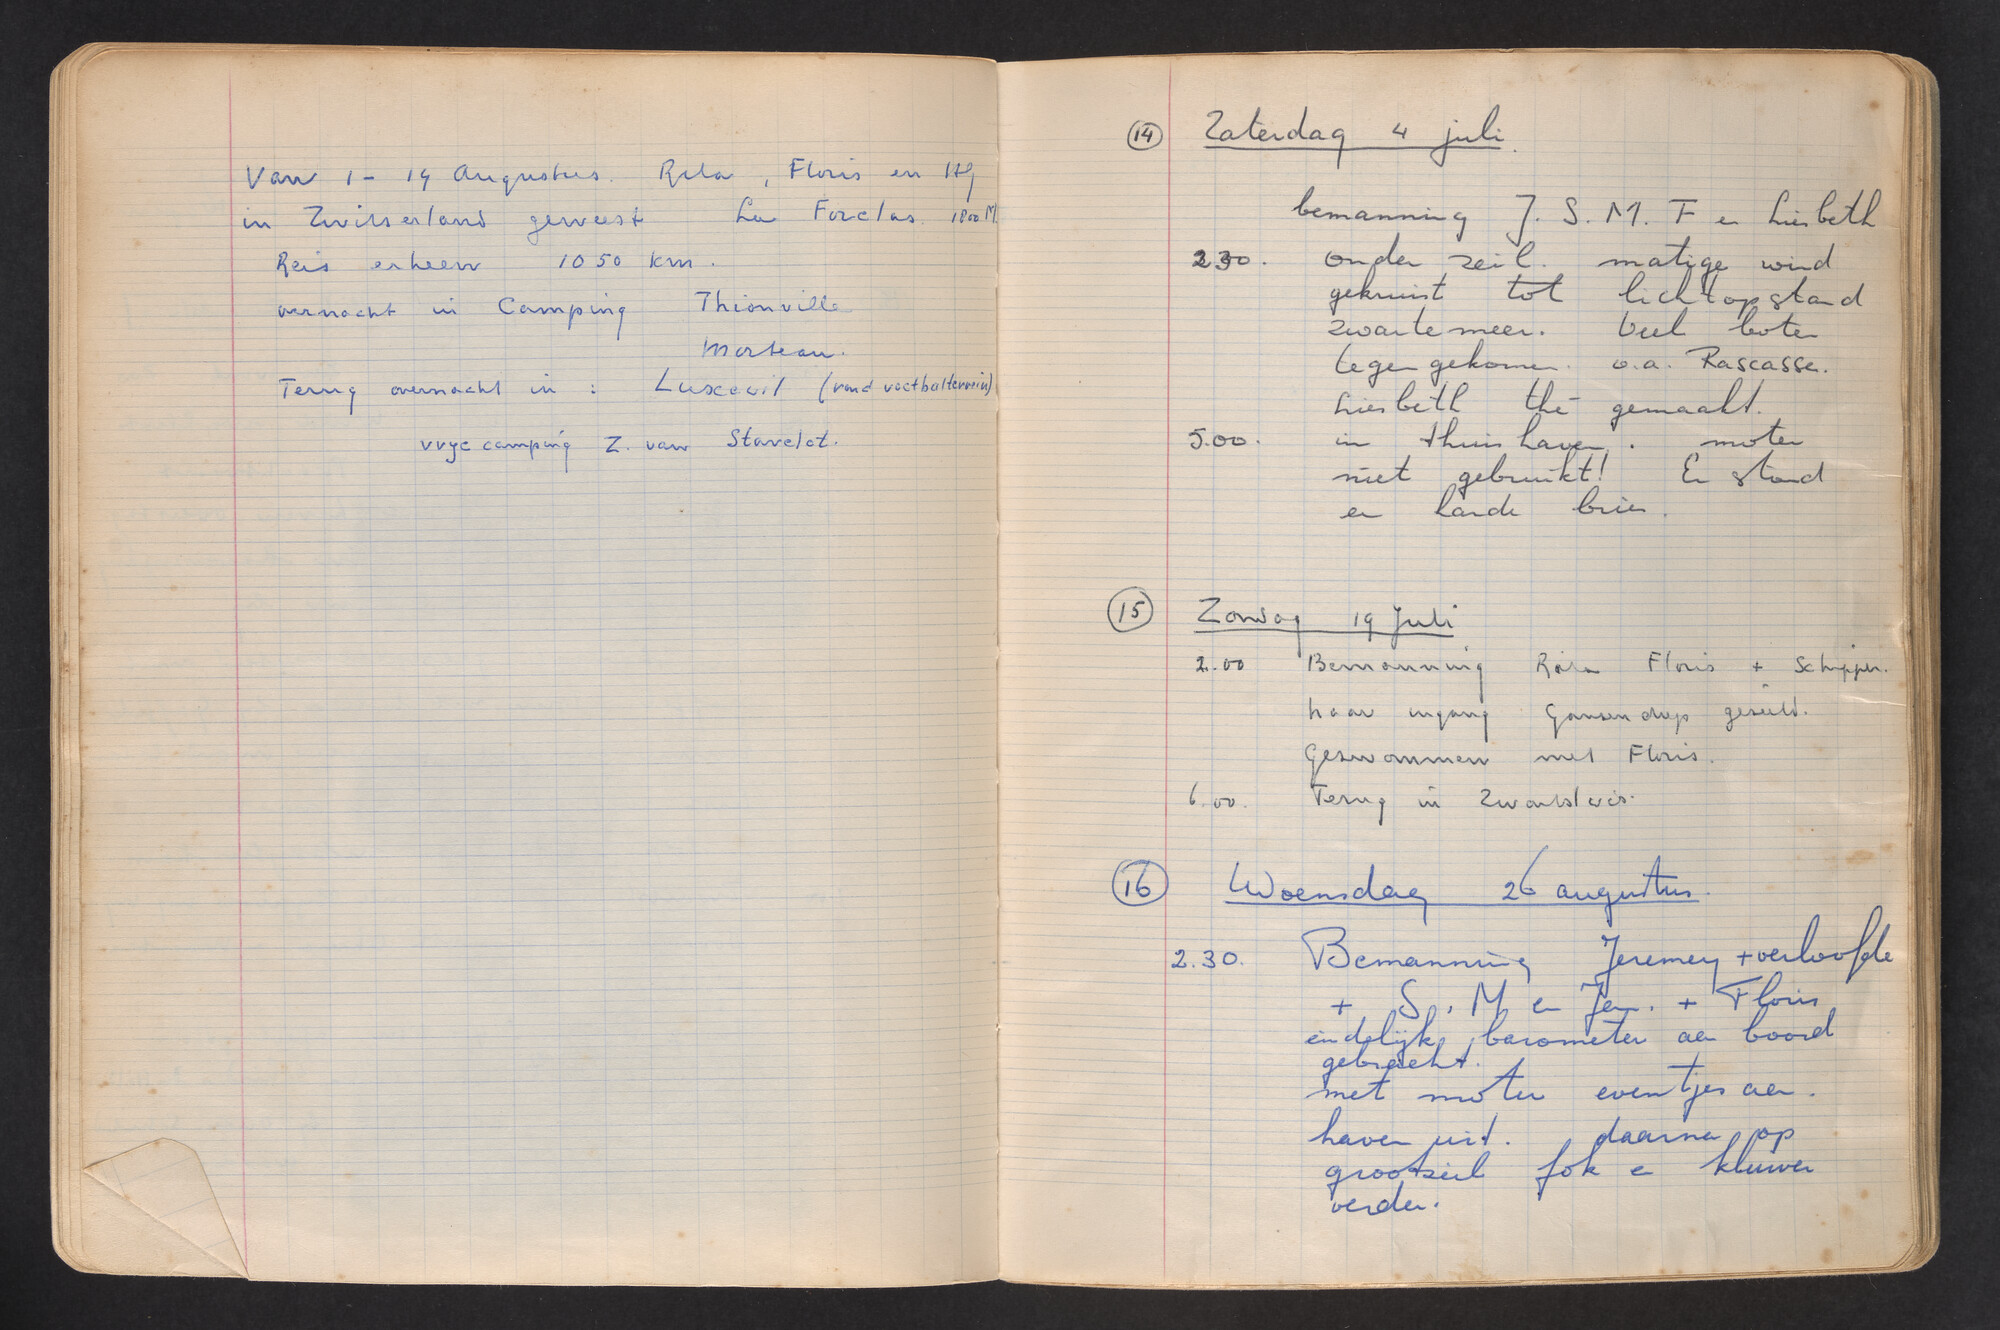 Van 1 - 19 Augustus. Rita, Floris en
in Zwitserland geweest La Forclas. 1800 M.
Reis erheen 1050 km.
overnacht in Camping Thionville
Morteau.
Terug overnacht in : Luxeuil (rond voetbalterrein)
vrye camping Z. van Stavelot.
14 Zaterdag 4 juli.
bemanning J. S. M. F en Liesbeth
2.30. onder zeil. matige wind
gekruist tot lichtopstand
zwarte meer. Veel boten
tegengekomen. o.a. Rascasse.
Liesbeth thé gemaakt.
5.00. in thuishaven. moter
niet gebruikt! Er stond
en harde bries.
15 Zondag 19 Juli
2.00 Bemanning Floris + Schipper.
Naar ingang Ganzendiep gezeild.
Gezwommen met Floris.
6.00. Terug in Zwartsluis.
16 Woensdag 26 augustus.
2.30. Bemanning Jeremey + verloofde
+ S. M en Jan. + Floris
eindelijk barometer aan boord
gebracht.
met moter eventjes aan.
haven uit. daarna op
grootzeil fok en kluiver
verder.